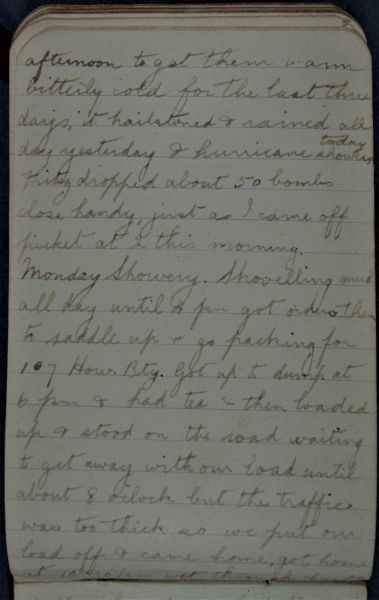 afternoon to get them warm
bitterily cold for the last three
days, it hailstoned & rained all
day yesterday & hurricane showers today
Fritz dropped about 50 bombs
close handy, just as I came off
picket at 2 this morning.
Monday Showery. Shovelling mud
all day until 4 pm got orders then
to saddle up & go packing for
107 How. Bty. Got up to dump at
6 pm & had tea & then loaded
up & stood on the road waiting
to get away with our load until
about 8 o'clock but the traffic
was too thick so we put our
load off & came home, got home
at 10.30 pm wet through